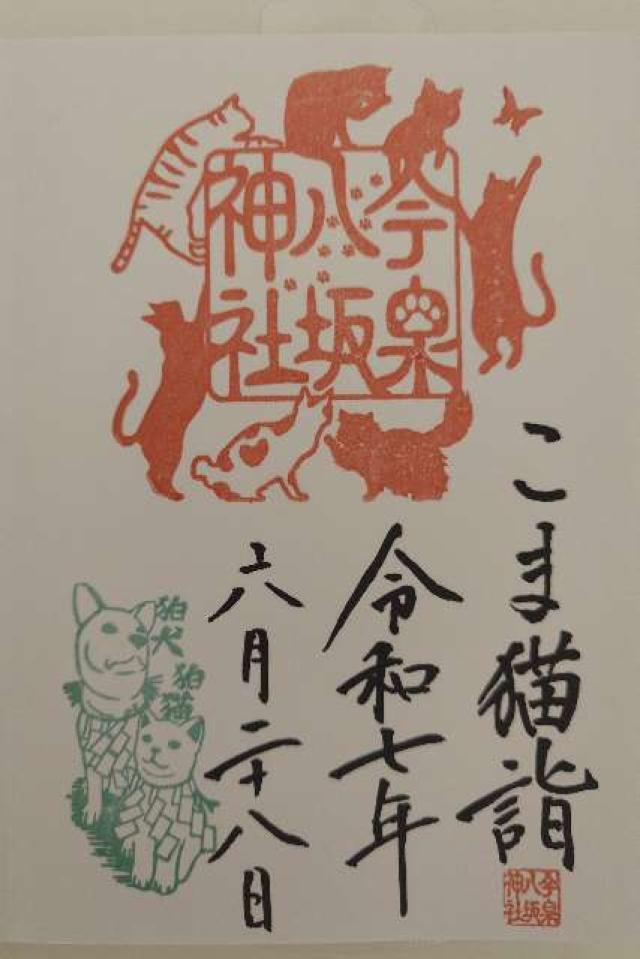 今泉
八坂
神社
こま猫詣
令和七年
六月二十八日
狛犬
狛猫
今泉
八坂
神社